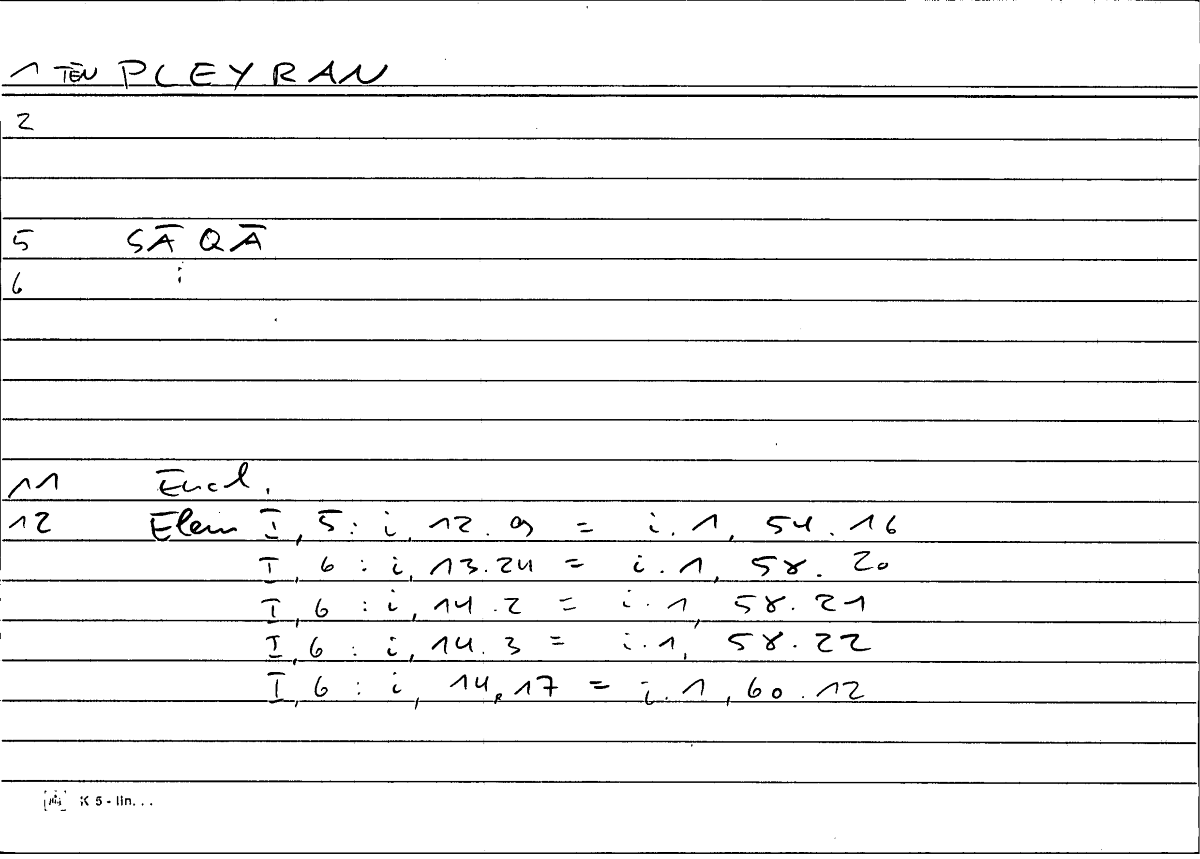 1 TĒN PLEYRAN
2
5 SĀQĀ
6 i
11 Eucl.
12 Elem I, 5 : i, 12.9 = i.1, 54.16
I, 6 : i, 13.24 = i.1, 58.20
I, 6 : i, 14.2 = i.1, 58.21
I, 6 : i, 14.3 = i.1, 58.22
I, 6 : i, 14,17 = i.1, 60.12
K 5 - lin...